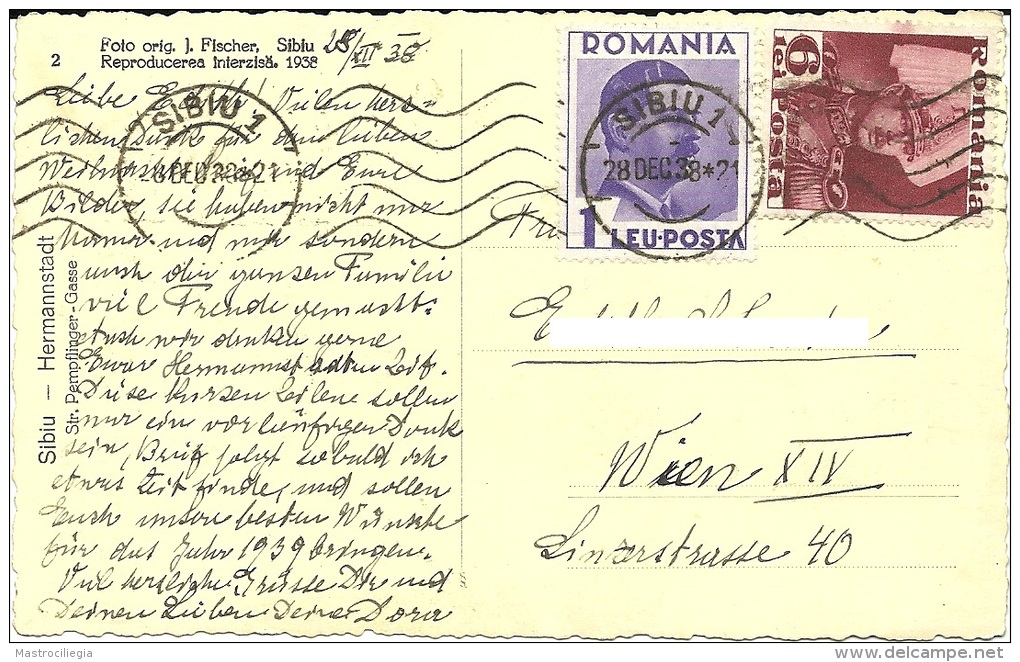 2
Foto orig. J. Fischer, Sibiu
Reproducerea interzisă. 1938
28/XII 38
Liebe Vielen herz=
lichen Dank für den lieben
Weihnachts und Eure
Bilder, sie haben nicht nur
Mama und mir sondern
auch der ganzen Familie
viel Freude gemacht.
Auch wir denken gerne
Eurer Hermannstädter Zeit.
Diese kurzen Zeilen sollen
nur ein vorläufiger Dank
sein, Brief folgt sobald ich
etwas Zeit finde, und sollen
Euch unsere besten Wünsche
für das Jahr 1939 bringen.
Viel herzliche Grüsse Dir und
Deinen Lieben Deine Dora
Sibiu — Hermannstadt
Str. Pempflinger-Gasse
SIBIU 1
28 DEC 38*21
ROMANIA
1 LEU·POSTA
SIBIU 1
28 DEC 38*21
Romania
6 lei Posta
Wien XIV
Linzerstrasse 40
Mastrociliegia
delcampe.net